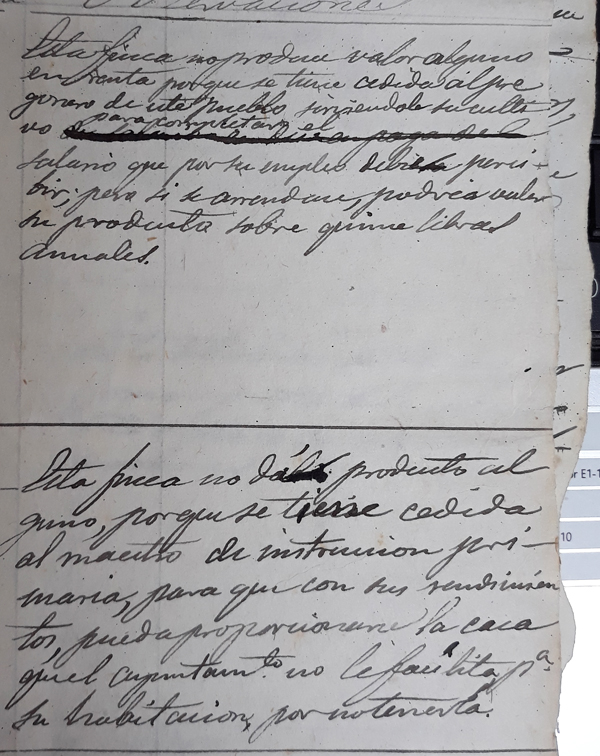 Observaciones
Esta finca no produce valor alguno
en renta porque se tiene cedida al pre
gonero de este Pueblo sirviendole su culti
vo para completar el
salario que por su empleo debiera perci-
bir; pero si se arrendara, podria valer
su producto sobre quince libras
anuales.
Esta finca no dá producto al
guno, porque se tiene cedida
al maestro de instruccion pri-
maria, para que con sus rendimien
tos, pueda proporcionarse la casa
que el ayuntam.to no le facilita p.a
su habitacion, por no tenerla.
or E1-1
10